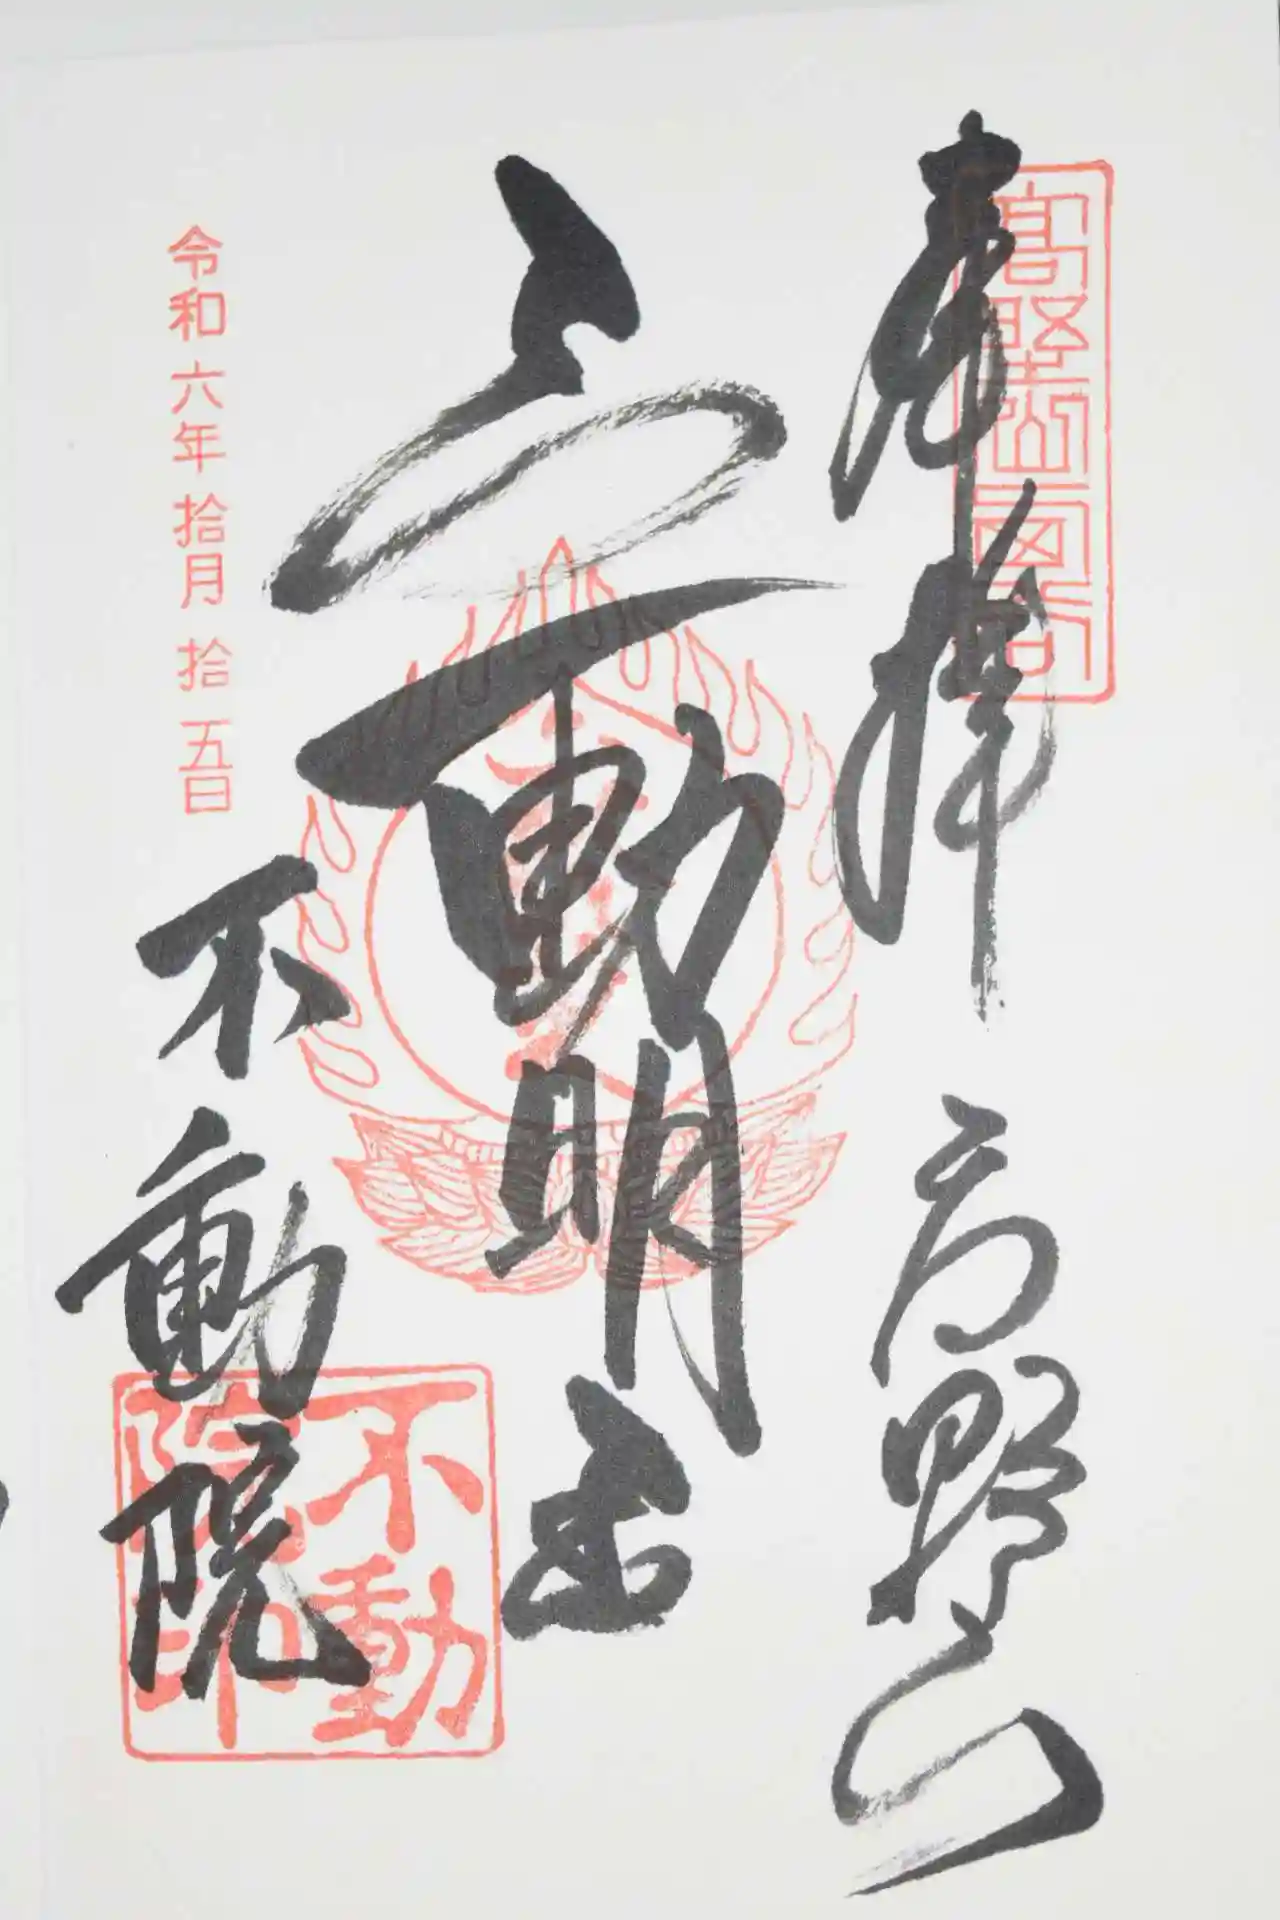 奉拝 高野山
不動明王
令和六年拾月拾五日
不動院
不動院印